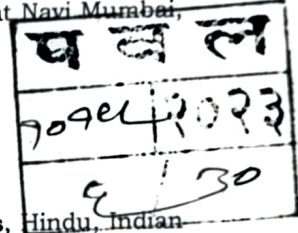 at Navi Mumbai,
प व ल
२०२३
६ / ३०
, Hindu, Indian